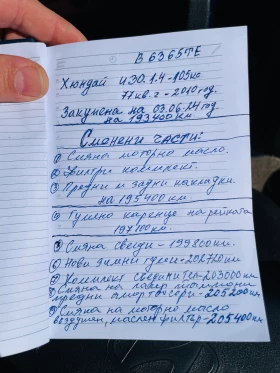 В6365ТЕ
Хюндай ИЗО.1.4-105кс
77кв.г-2010год.
Закупена на 03.06.24год
на 193400км
Сменени части:
① Смяна моторно масло.
② Филтри комплект.
③ Предни и задни накладки
на 195400км
④ Гумено каренце на рейката
197100км.
⑤ Смяна свещи-199800км.
⑥ Нови зимни гуми-202720км
⑦ Комплект съединител-203000км
⑧ Смяна на лагер
предни амортисьори-205200км
⑨ Смяна на моторно масло
въздушен, маслен филтър-205400км